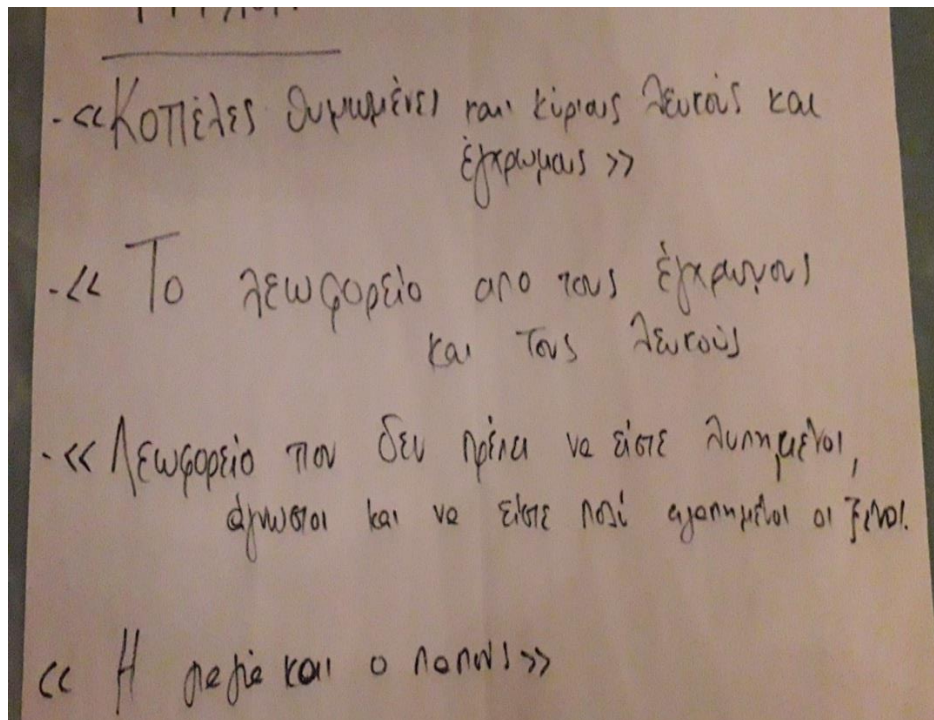 -«Κοπέλες θυμωμένες και κύριους λευκούς και
έγχρωμους»
-«Το λεωφορείο απο τους έγχρωμους
και τους λευκούς
-«Λεωφορείο που δεν πρέπει να είστε λυπημένοι,
άγνωστοι και να είστε πολί αγαπημένοι οι ξένοι.
«Η γιαγιά και ο παπούς»